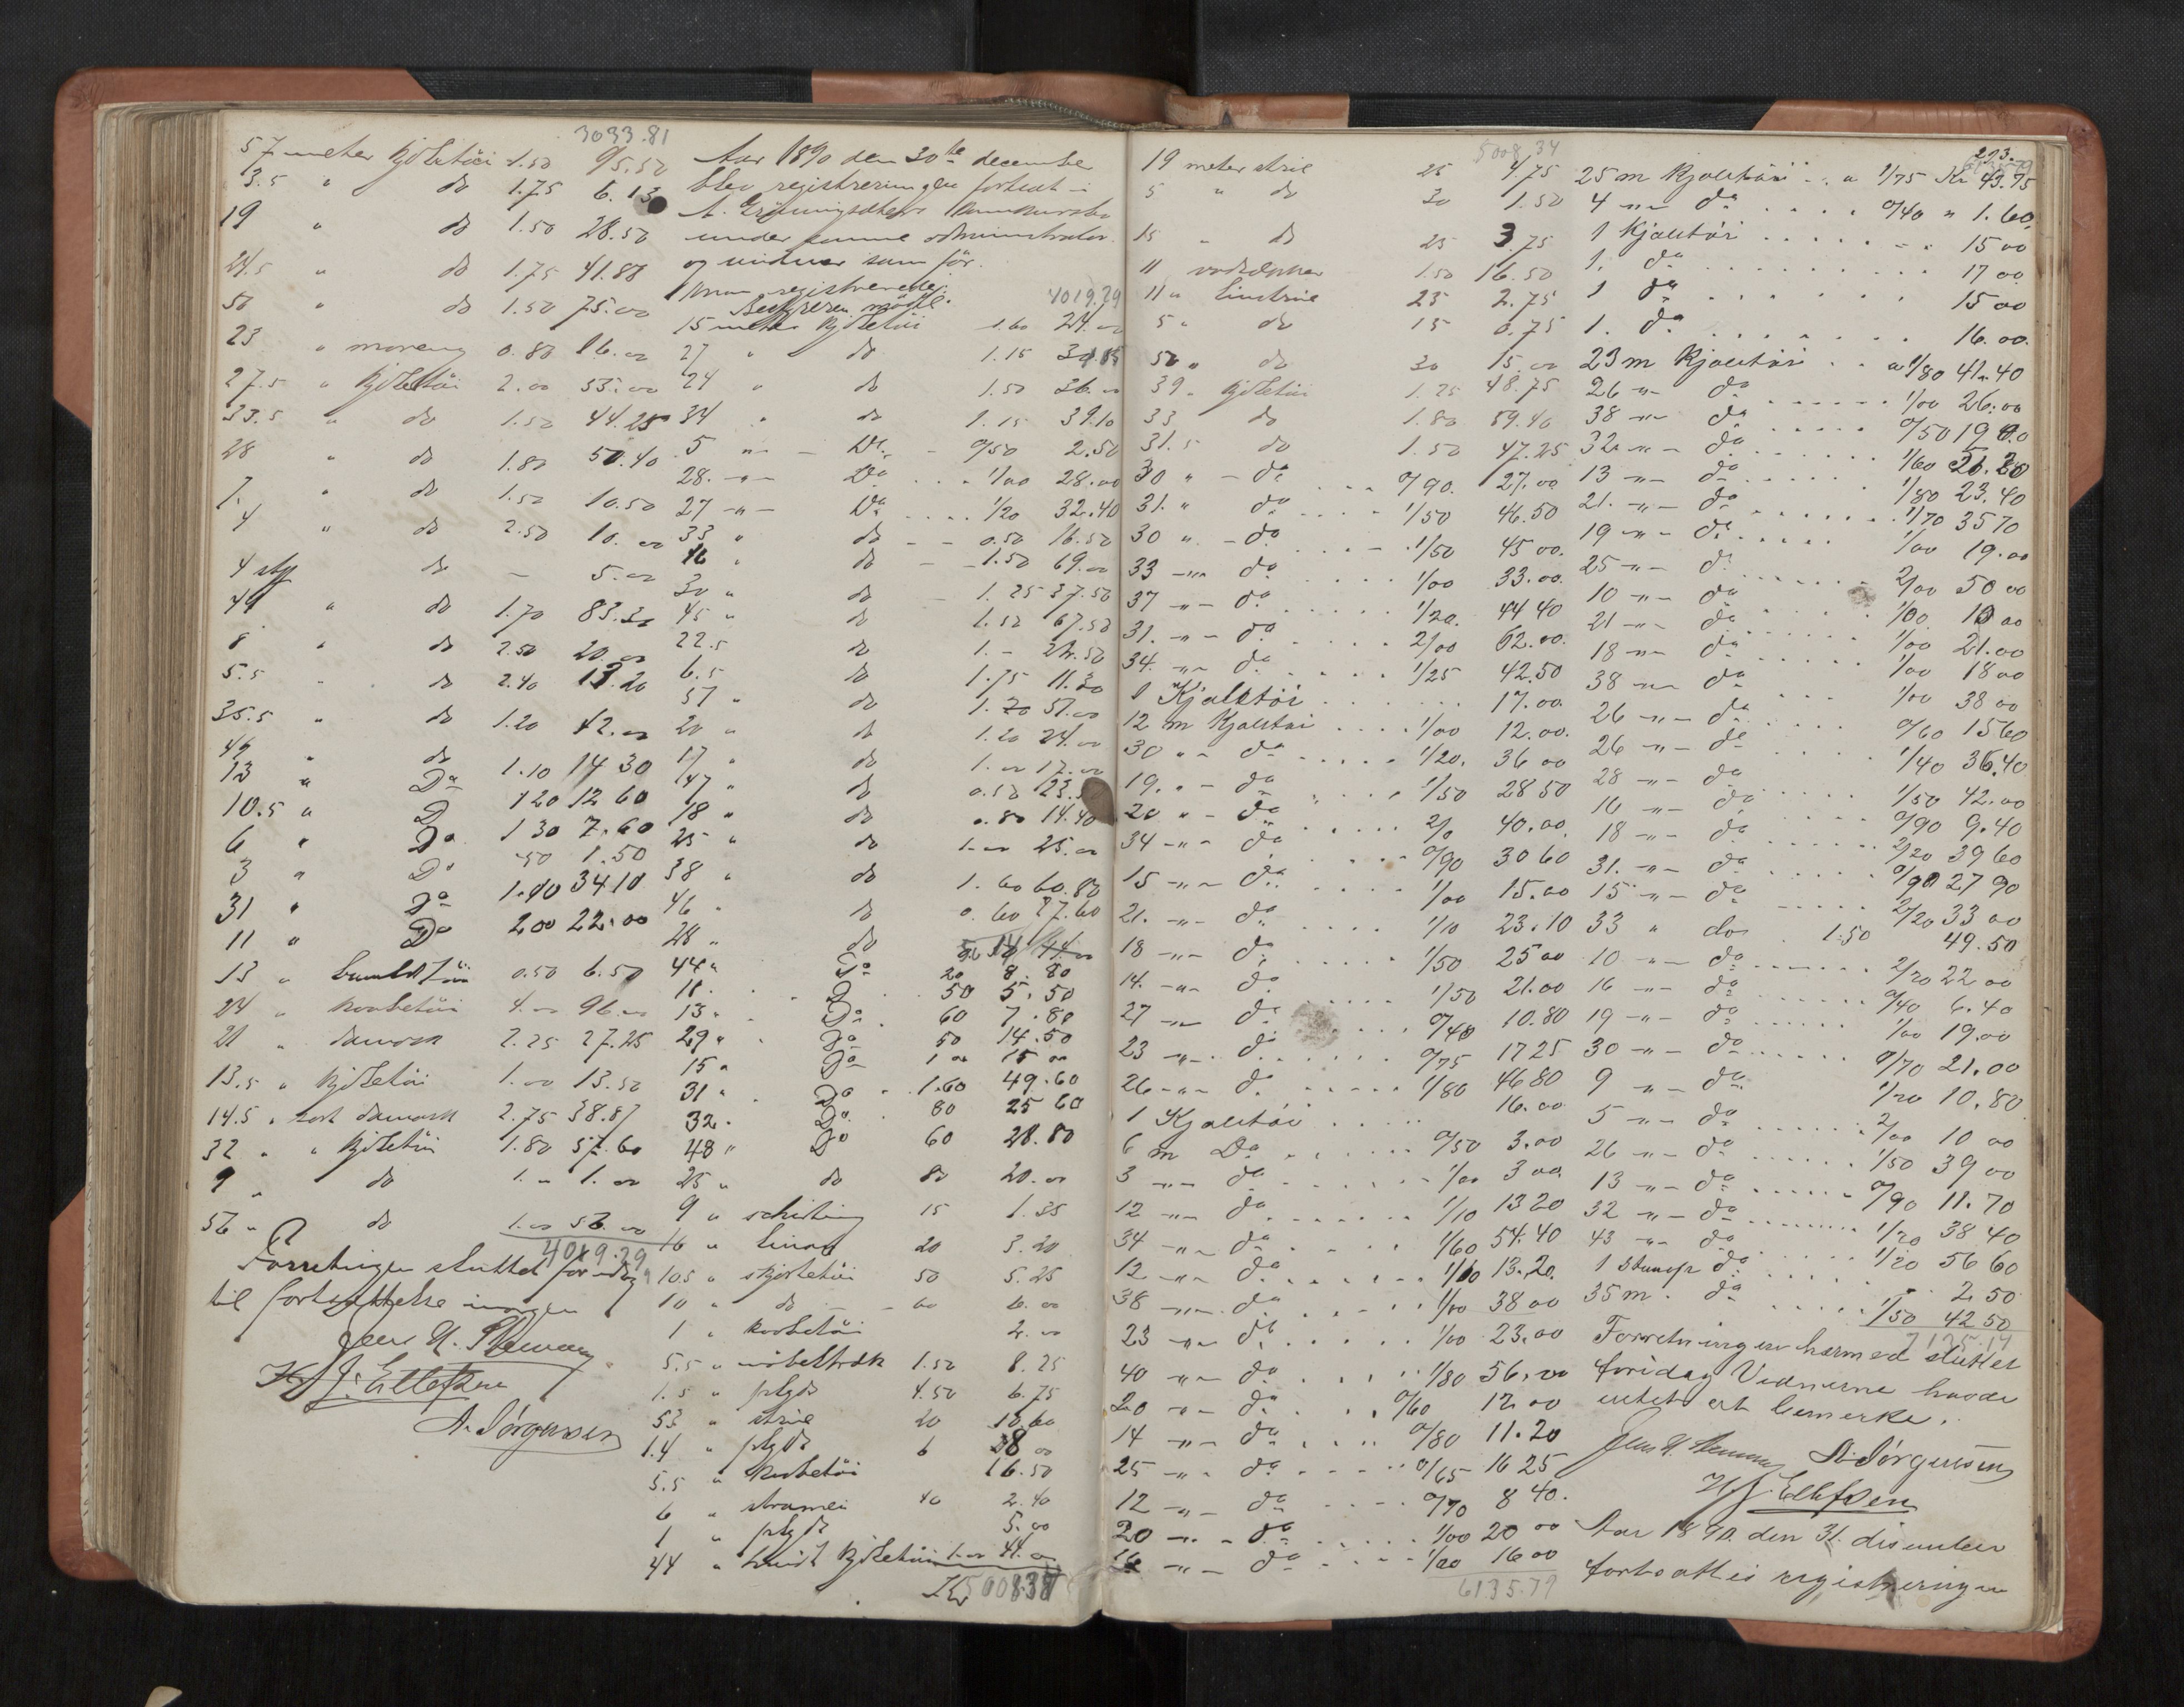 3033.81
57 meter kjoletöi 1.50 95.50
3.5 " do 1.75 6.13
19 " do 1.50 28.50
24.5 " do 1.75 41.88
50 " do 1.50 75.00
23 " moreng 0.80 16.00
27.5 " kjoletöi 2.00 55.00
33.5 " do 1.50 44.25
28 " do 1.80 50.40
7. " do 1.50 10.50
4 " do 2.50 10.00
4 stk do – 5.00
49 " do 1.70 83.30
8 " do 2.50 20.00
5.5 " do 2.40 13.20
35.5 " do 1.20 42.00
do
13 " Do 1.10 14 30
10.5 " D 1 20 12 60
6 " Do 1 30 7.60
3 " Do .50 1.50
31 " Do 1.10 34 10
11 " Do 2 00 22.00
13 " 0.50 6.50
24 " 4.00 96.00
21 " damask 2.25 27.25
13.5 " kjoletöi 1.00 13.50
14.5 " sort damask 2.75 38.87
32 " " kjoletöi 1.80 57.60
9 " do 1.00 1.00
56 " do 1.00 56.00
4019.29
Forretningen sluttet for idag
til fortsættelse imorgen
H. J. Ellefsen
A. Jörgensen
Aar 1890 den 30te december
blev registreringen fortsat i
A. konkursbo
under samme administrator
og vidner som för.
Man registrerede:
Bestyreren mödte.
4019.29
15 meter kjoletöi 1.60 24.00
27 " do 1.15 31.05
24 " do 1.50 36.00
34 " do 1.15 39.10
5 " – Do – 0/50 2.50
28. –"– Do . . . 1/00 28.00
27 –"– Do . . . . 1/20 32.40
33 " do – – 0.50 16.50
46 " do – – 1.50 69.00
30 " do – 1.25 37.50
45 " do 1.50 67.50
22.5 do 1.– 22.50
6.5 do 1.75 11.30
57 " do 1. 57.00
20 " do 1.20 24.00
17 " do 1.00 17.00
47 " do 0.50 23.
18 " do 0.80 14.40
25 " do 1.00 25.00
38 " do 1.60 60.80
46 " do 0.60 27.60
28 " do
44 " Do 20 8.80
11 . . D . 50 5.50
13 " Do 60 7.80
29 " Do 50 14.50
15 " Do 1 00 15 00
31 " Do . 1.60 49.60
32 . Do . 80 25 60
48 " Do 60 28.80
25 " do 80 20.00
9 " schirting 15 1.35
16 " 20 3.20
10.5 " skjortetöi 50 5.25
10 " do – – 60 6.00
1 " 2.00
5.5 " möbeltræk 1.50 8.25
1.5 " plyds 4.50 6.75
53 " strie 20 10.60
1.4 " plyds 6 8 00
5.5 " 16.50
6 " stramei 40 2.40
1 " plyds 5.00
44 " kjoletöi 1.00 44.00
Kr 5008.34
5008.34
19 meter strie 25 4.75
5 " do 30 1.50
15 " do 25 3.75
11 1.50 16.50
11 " Linstrie 25 2.75
5 " do 15 0.75
50 " do 30 15.00
39 " kjoletöi 1.25 48.75
33 do 1.80 59.40
31.5 do 1.50 47.25
30 " – do . . . 0/90. 27.00
31. " do . . . . 1/50 46.50
30 " – do . . . . 1/50 45 00.
33 –"– do . 1/00 33.00.
37 –"– do . . . . . 1/20. 44 40
31. –"– do . . . . 2/00 62.00.
34. –"– do . . . . . 1/25 42.50
1 Kjoletöi . . . . . . . 17.00
12 m Kjoletöi . . . . 1/00 12.00.
30 "– do . . . . . 1/20. 36 00
19. "– do . . . . 1/50 28 50
20 "– do . . . . . 2/0 40.00.
34 –"– do . . . . 0/90 30 60
15 –"– do . . . . . 1/00 15.00
21. –"– do . . . . 1/10 23.10
18 –"– do . . . . . . 1/50 25 00
14. –"– do . . . . . 1/50 21.00
27 –"– do . . . . 0/40 10.80
23 –"– do . . . . . . . 0/75 17 25
26 –"– do . . . . . . 1/80 46 80
1 Kjoletöi . . . . . 16.00
6 m Do . . . . . . 0/50 3.00
3 –"– do . . . . . . 1/00 3 00.
12 –"– do . . . . . . 1/10 13 20
34 –"– do . . . . . 1/60 54.40
12 –"– do . . . . . . 1/10 13.20.
38 –"– do . . . . . 1/00 38 00
23 –"– do . . . . . 1/00 23.00
40 –"– do . . . . . . 1/80 56.00
20 –"– do . . . . 0/60 12.00
14 –"– do . . . . . 0/80 11.20
25 –"– do . . . . . 0/65 16 25
12 –"– do . . . . 0/70 8 40.
20 –"– do . . . . . . 1/00 20 00
16 –"– do . . . . 1/00 16 00
6135.79
213.
25 m Kjoletöi . . a 1/75 Kr 43.75
4 –"– do . . . . . 0/40 " 1.60
1 Kjoletöi . . . . . . . 15 00
1. do . . . . . . . . . 17 00
1 do . . . . . . . 15 00
1. do . . . . . . . 16.00.
23 m Kjoletöi . . a 1/80 41.40
26 –"– do . . . . . . 1/00 26.00
38 –"– do . . . . . 0/50 19 00
32 –"– do . . . . . . 1/60
13 –"– do . . . . . . 1/80 23.40
21. –"– do . . . . . . . 1/70 35 70
19 –"– do . . . . . 1/00 19.00
25 –"– do . . . . . . 2/00 50 00
10 –"– do . . . . 1/00. 10 00
21 –"– do . . . . . . 1/00 21.00
18 –"– do . . . . . 1/00 18 00
38 –"– do . . . 1/00 38 00
26 –"– do . . . . . 0/60 15 60
26 –"– do . . . . 1/40 36.40
28 –"– do . . . . . 1/50 42.00
10 –"– do . . . . 0/90 9.40
18 –"– do . . . . . . 2/20 39 60
31. –"– do . . . . . 0/90 27 90
15 –"– do . . . . . . 2/20 33 00
33 " do . 1.50 49.50
10 –"– do . . . . . . 2/20 22 00
16 –"– do . . . . . . 0/40 6.40
19 –"– do . . . . . . 1/00 19.00
30 –"– do . . . . . . 0/70 21.00
9 –"– do 1/20 10.80
5 –"– do . . . . . . 2/00 10 00
26 –"– do . . . . . . 1/50 39 00
13 –"– do . . . . . . 0/90 11.70
32 –"– do . . . . . . . 1/20 38 40
43 –"– do . . . . . 1/20 56 60
1 Stump do . . . . . 2 50
35 m. do . . . . . 1/50 42 50
7125.14
Forretningen hermed sluttet
foridag Vidnerne havde
intet at bemerke.
A. Jörgensen
H J. Ellefsen
Aar 1890. den 31. disember
fortsattes registreringen